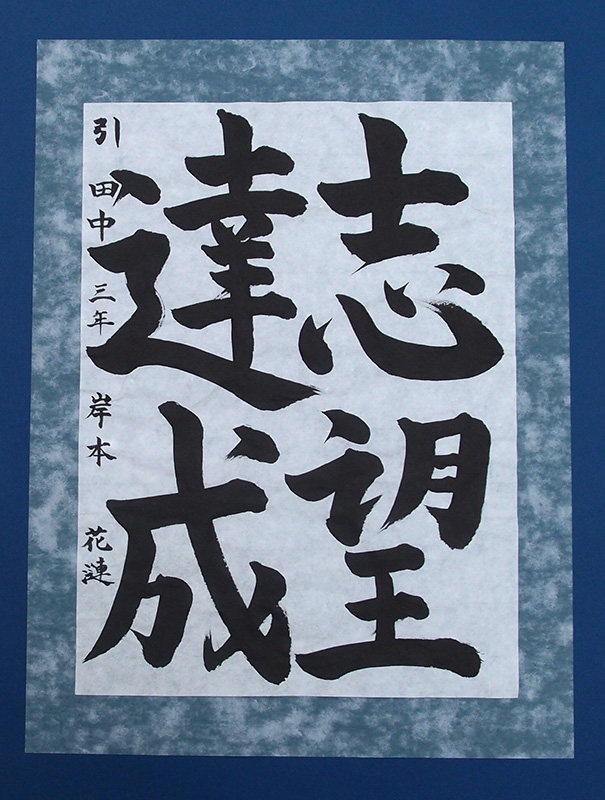 志望
達成
引田中三年 岸本 花漣